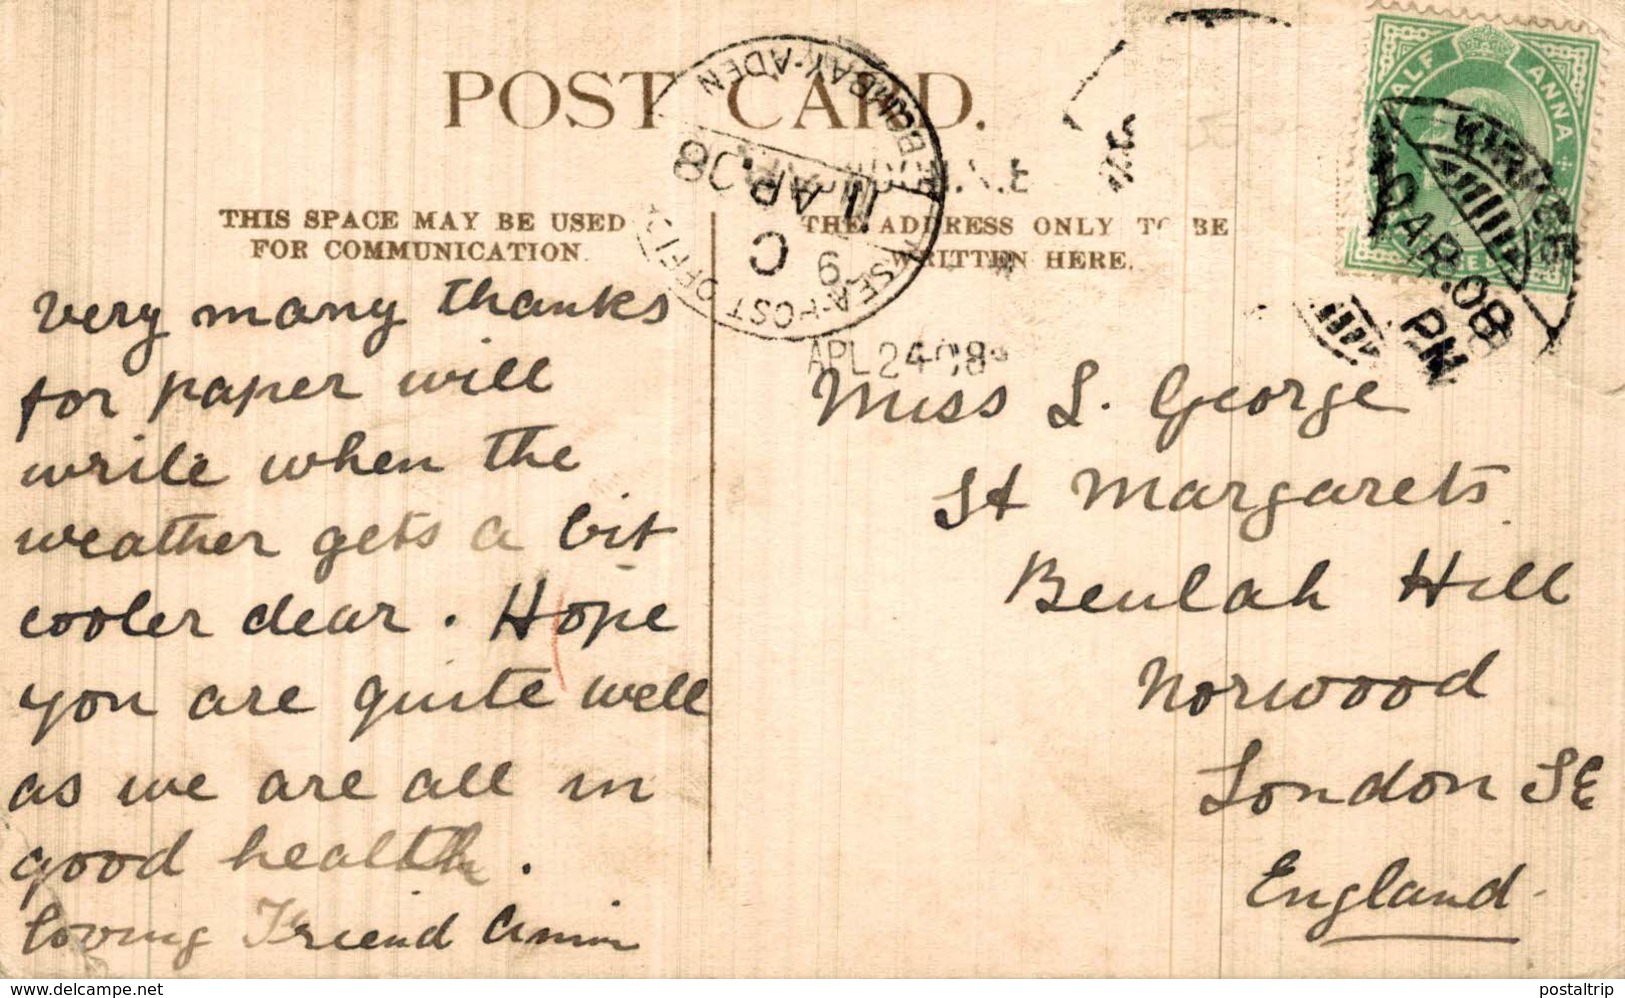 POST CARD.
THIS SPACE MAY BE USED
FOR COMMUNICATION.
THE ADDRESS ONLY TO BE
WRITTEN HERE.
SEA POST OFFICE
BOMBAY-ADEN
11 AP. 08
C
9
APL 24 08
HALF ANNA
KIRKEE
10 AP. 08
PM
very many thanks
for paper will
write when the
weather gets a bit
cooler dear. Hope
you are quite well
as we are all in
good health.
loving Friend
Miss L. George
St Margarets
Beulah Hill
Norwood
London SE
England
www.delcampe.net
postaltrip